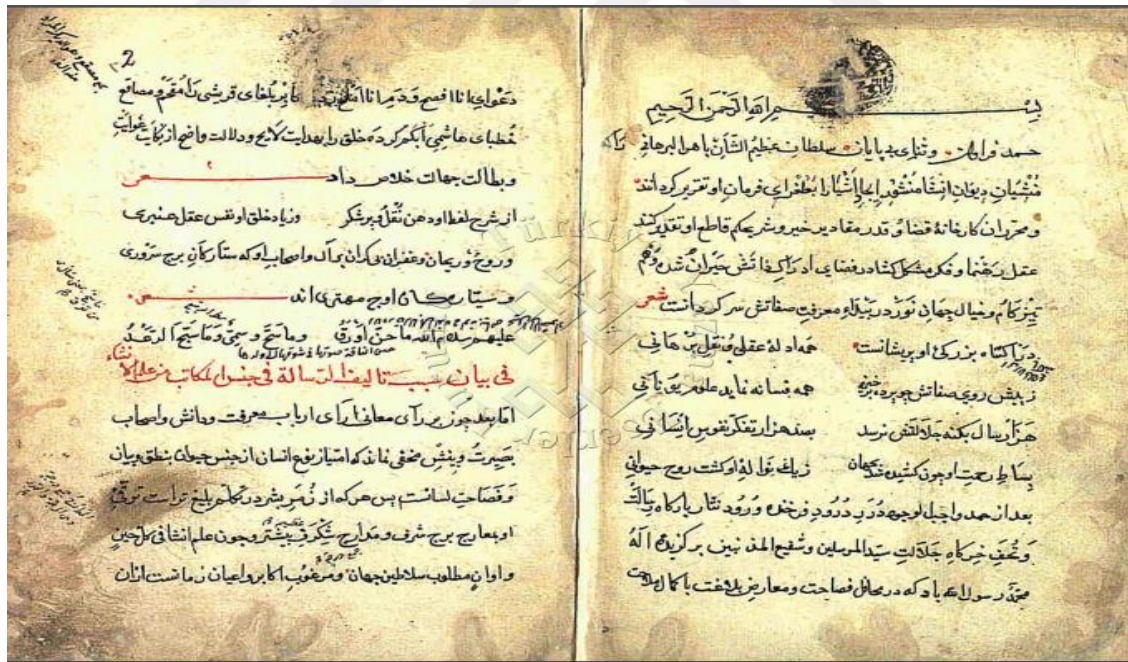 بسم الله الرحمن الرحیم
حمد فراوان و ثنای بی پایان سلطان عظیم الشان باهر البرهانی را که
منشیان دیوان انشا منشور ایجاد اشیا را بطغرای فرمان او تقریر کردانند
و محرران کارخانهٔ قضا و قدر مقادیر خیر و شر بحکم قاطع او تقدیر کنند
عقل رهنما و فکر مشکل کشا در فضای ادراک ذاتش حیران شده وهم
تیزکام و خیال جهان نورد در بیداء معرفت صفاتش سرکردانست شعر
بزرکی اوبریشانست همه ادلهٔ عقلی و نقل برهانی
زپیش روی صفاتش چو پرده برخیزد همه فسانه نماید علوم یونانی
هزار سال بکنه جلالتش نرسد بصد هزار تفکر نفوس انسانی
بساط رحمت او چون کشیده شد بجهان زیک نوالهٔ او کشت روح حیوانی
بعد از حمد واجب الوجود درر درود فرخنده ورود نثار بارکاه رسالت
و تحف خرکاه جلالت سید المرسلین و شفیع المذنبین برکزیده اله
محمد رسول الله باد که در محافل فصاحت و معارض بلاغت با کمال ملاحت
2
دعوای انا افصح و دم انا املح بلغای قریشی را مفحم و مصاقع
خطبای هاشمی را ابکم کرده خلق را بهدایت لایح و دلالت واضح از نکایت غوایت
و بطالت جهالت خلاص داد شعر
از شرح لفظ او دهن نقل پر شکر وز یاد خلق او نفس عقل عنبری
و روح و ریحان و غفران بی کران بر آل و اصحاب او که ستارکان برج سروری
و سیارکان اوج مهتری اند شعر
علیهم سلام الله ما حن اورق وما سح وسمی وما سبح الرعد
فی بیان سبب تالیف الرسالة فی جنس المکاتب من علم الانشاء
اما بعد چون بر رآی معانی آرای ارباب معرفت و دانش و اصحاب
بصیرت و بینش مخفی نماند که امتیاز نوع انسان از جنس حیوان بنطق و بیان
و فصاحت لسانست پس هر که از زمر بشر در تکلم بلیغ تر است ترقی
او بمعارج برج شرف و مدارج شکرف بیشتر و چون علم انشا فی کل حین
و اوان مطلوب سلاطین جهان و مرغوب اکابر و اعیان زمانست ازان